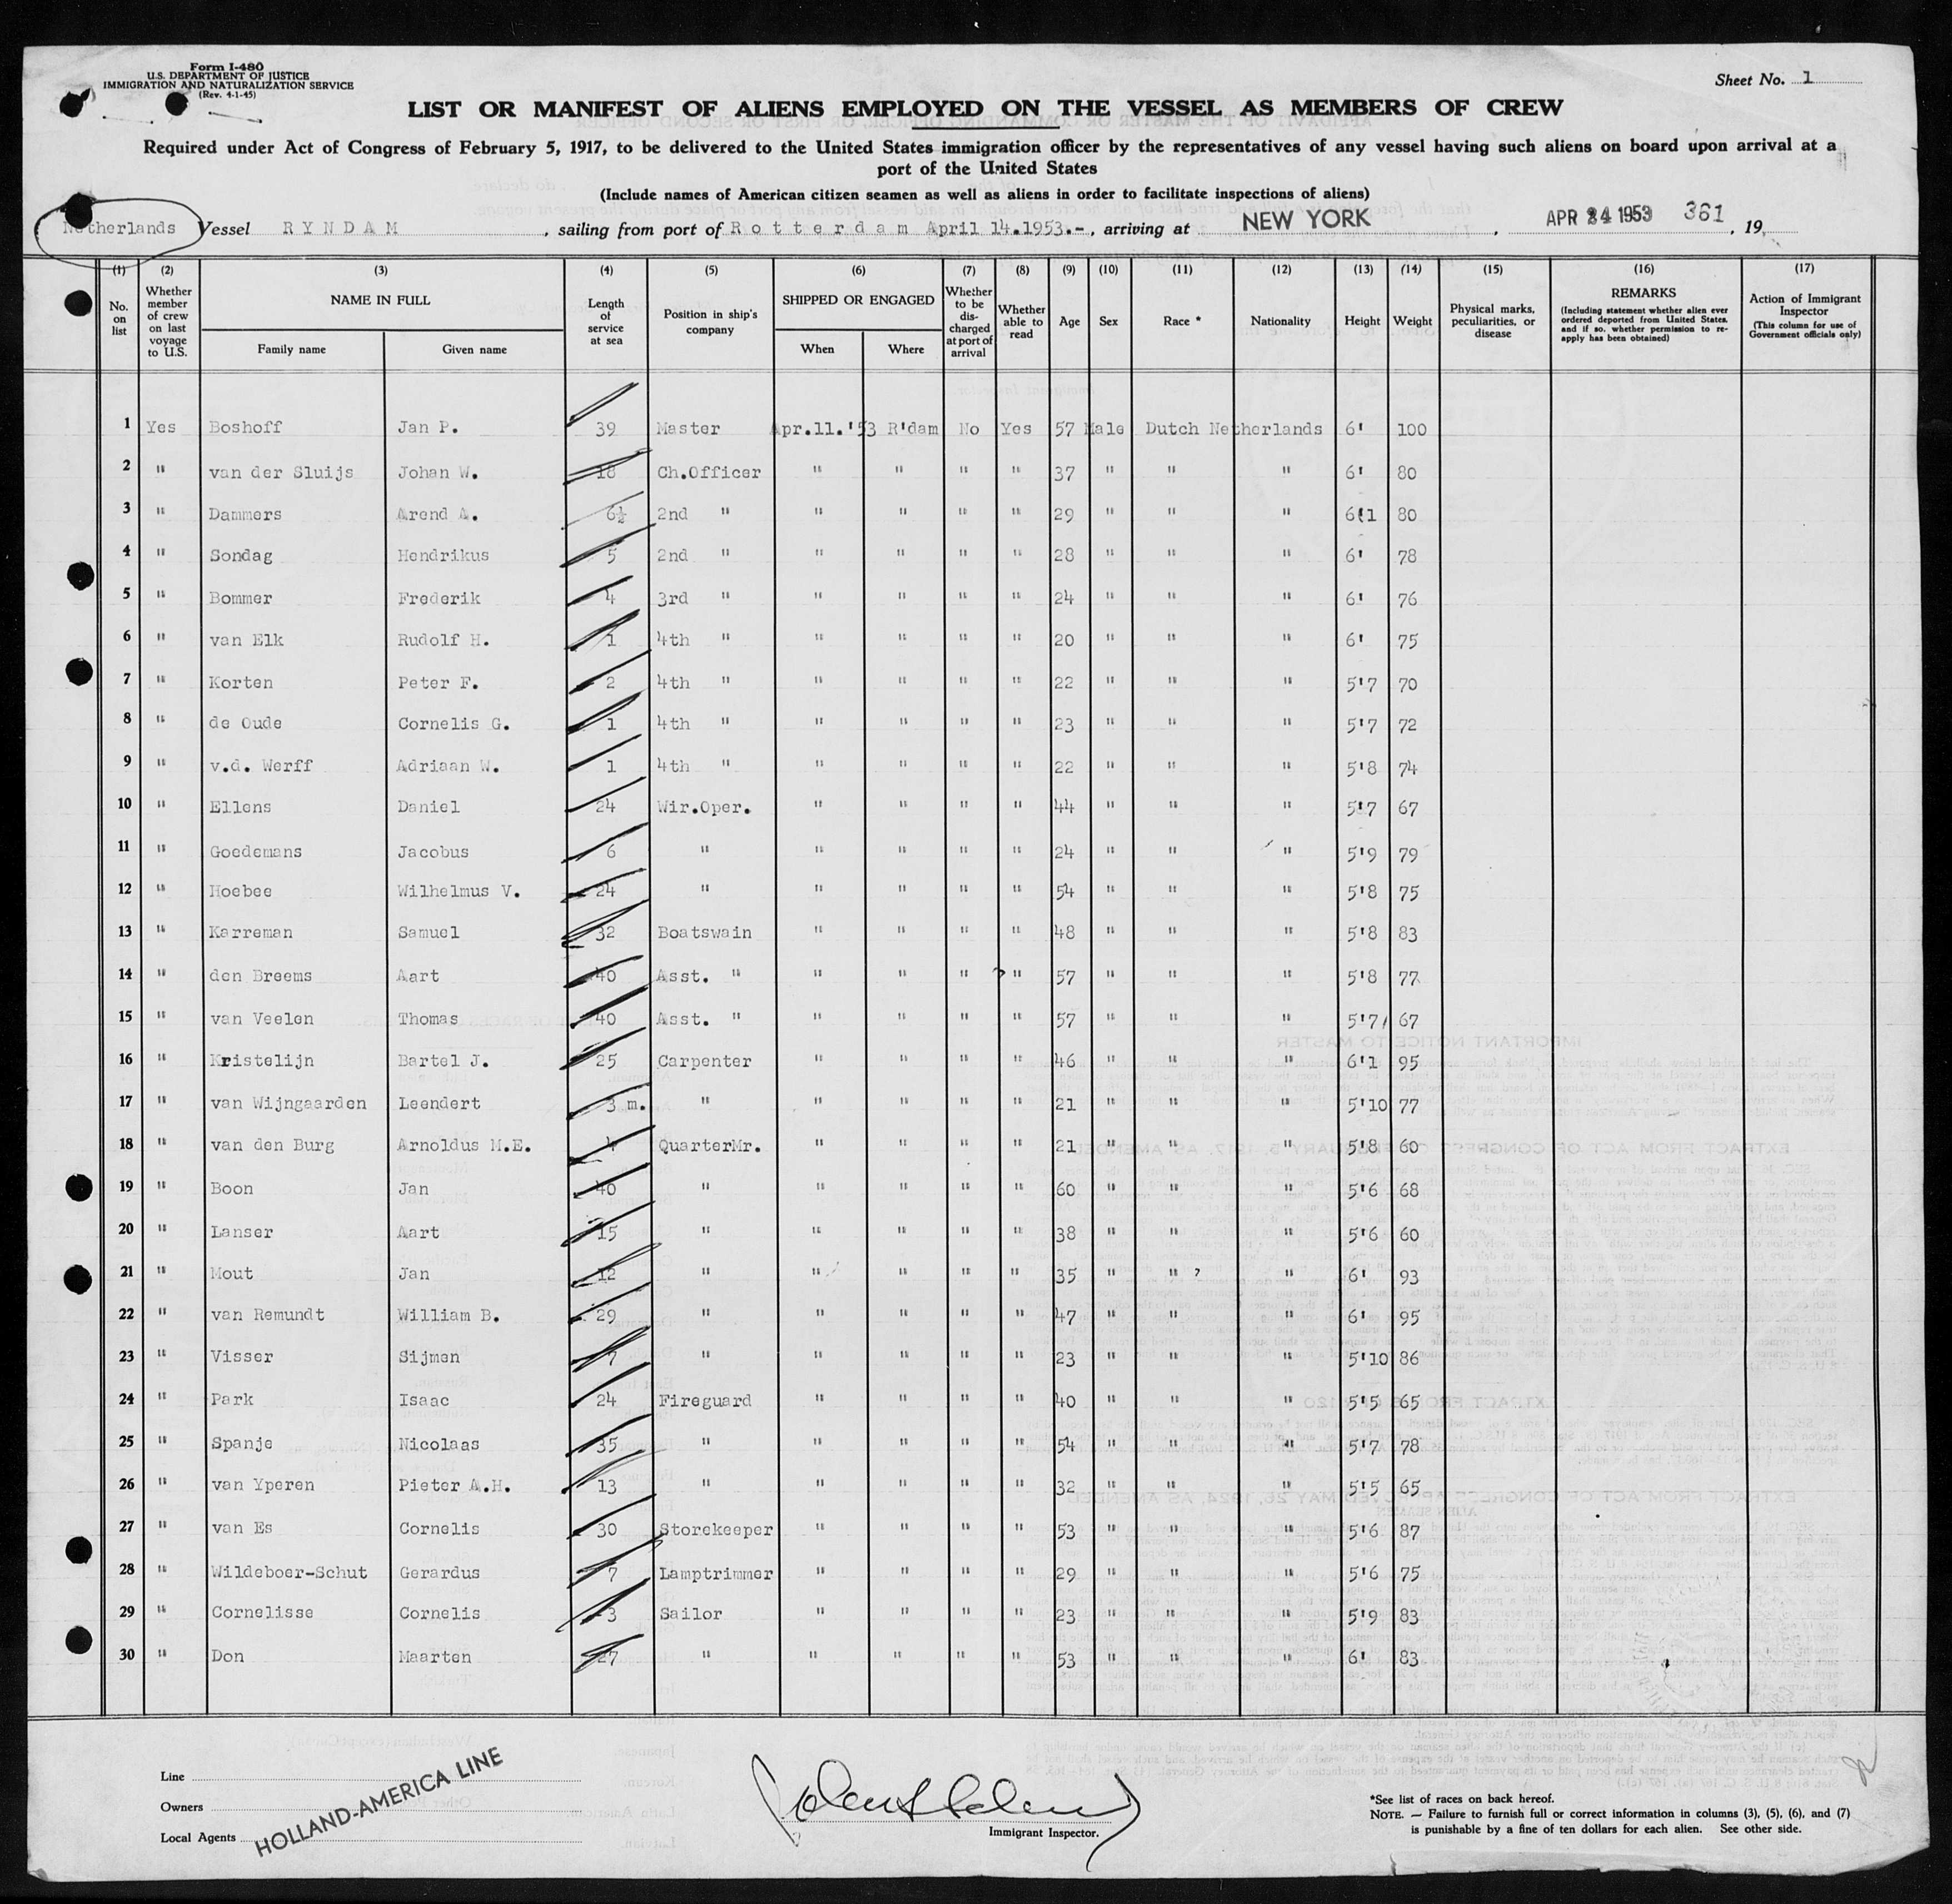 Form I-480
U.S. DEPARTMENT OF JUSTICE
IMMIGRATION AND NATURALIZATION SERVICE
(Rev. 4-1-45)
Sheet No. 1
LIST OR MANIFEST OF ALIENS EMPLOYED ON THE VESSEL AS MEMBERS OF CREW
Required under Act of Congress of February 5, 1917, to be delivered to the United States immigration officer by the representatives of any vessel having such aliens on board upon arrival at a
port of the United States
(Include names of American citizen seamen as well as aliens in order to facilitate inspections of aliens)
Netherlands Vessel RYNDAM, sailing from port of Rotterdam April 14.1953.-, arriving at NEW YORK, APR 24 1953 361, 19
(1) (2) (3) (4) (5) (6) (7) (8) (9) (10) (11) (12) (13) (14) (15) (16) (17)
No. on list
Whether member of crew on last voyage to U.S.
NAME IN FULL
Family name Given name
Length of service at sea
Position in ship's company
SHIPPED OR ENGAGED
When Where
Whether to be discharged at port of arrival
Whether able to read
Age
Sex
Race *
Nationality
Height
Weight
Physical marks, peculiarities, or disease
REMARKS
(Including statement whether alien ever ordered deported from United States, and if so, whether permission to re-apply has been obtained)
Action of Immigrant Inspector
(This column for use of Government officials only)
1 Yes Boshoff Jan P. 39 Master Apr.11.'53 R'dam No Yes 57 Male Dutch Netherlands 6' 100
2 " van der Sluijs Johan W. 18 Ch.Officer " " " " 37 " " " 6' 80
3 " Dammers Arend A. 6½ 2nd " " " " " 29 " " " 6'1 80
4 " Sondag Hendrikus 5 2nd " " " " " 28 " " " 6' 78
5 " Bommer Frederik 4 3rd " " " " " 24 " " " 6' 76
6 " van Elk Rudolf H. 1 4th " " " " " 20 " " " 6' 75
7 " Korten Peter F. 2 4th " " " " " 22 " " " 5'7 70
8 " de Oude Cornelis G. 1 4th " " " " " 23 " " " 5'7 72
9 " v.d. Werff Adriaan W. 1 4th " " " " " 22 " " " 5'8 74
10 " Ellens Daniel 24 Wir.Oper. " " " " 44 " " " 5'7 67
11 " Goedemans Jacobus 6 " " " " " 24 " " " 5'9 79
12 " Hoebee Wilhelmus V. 24 " " " " " 54 " " " 5'8 75
13 " Karreman Samuel 32 Boatswain " " " " 48 " " " 5'8 83
14 " den Breems Aart 40 Asst. " " " " " 57 " " " 5'8 77
15 " van Veelen Thomas 40 Asst. " " " " " 57 " " " 5'7 67
16 " Kristelijn Bartel J. 25 Carpenter " " " " 46 " " " 6'1 95
17 " van Wijngaarden Leendert 3 m. " " " " " 21 " " " 5'10 77
18 " van den Burg Arnoldus M.E. 4 QuarterMr. " " " " 21 " " " 5'8 60
19 " Boon Jan 40 " " " " " 60 " " " 5'6 68
20 " Lanser Aart 15 " " " " " 38 " " " 5'6 60
21 " Mout Jan 12 " " " " " 35 " " ? " 6' 93
22 " van Remundt William B. 29 " " " " " 47 " " " 6' 95
23 " Visser Sijmen 7 " " " " " 23 " " " 5'10 86
24 " Park Isaac 24 Fireguard " " " " 40 " " " 5'5 65
25 " Spanje Nicolaas 35 " " " " " 54 " " " 5'7 78
26 " van Yperen Pieter A.H. 13 " " " " " 32 " " " 5'5 65
27 " van Es Cornelis 30 Storekeeper " " " " 53 " " " 5'6 87
28 " Wildeboer-Schut Gerardus 7 Lamptrimmer " " " " 29 " " " 5'6 75
29 " Cornelisse Cornelis 3 Sailor " " " " 23 " " " 5'9 83
30 " Don Maarten 27 " " " " " 53 " " " 6' 83
Line
Owners
Local Agents
HOLLAND-AMERICA LINE
Immigrant Inspector.
*See list of races on back hereof.
NOTE. — Failure to furnish full or correct information in columns (3), (5), (6), and (7)
is punishable by a fine of ten dollars for each alien. See other side.